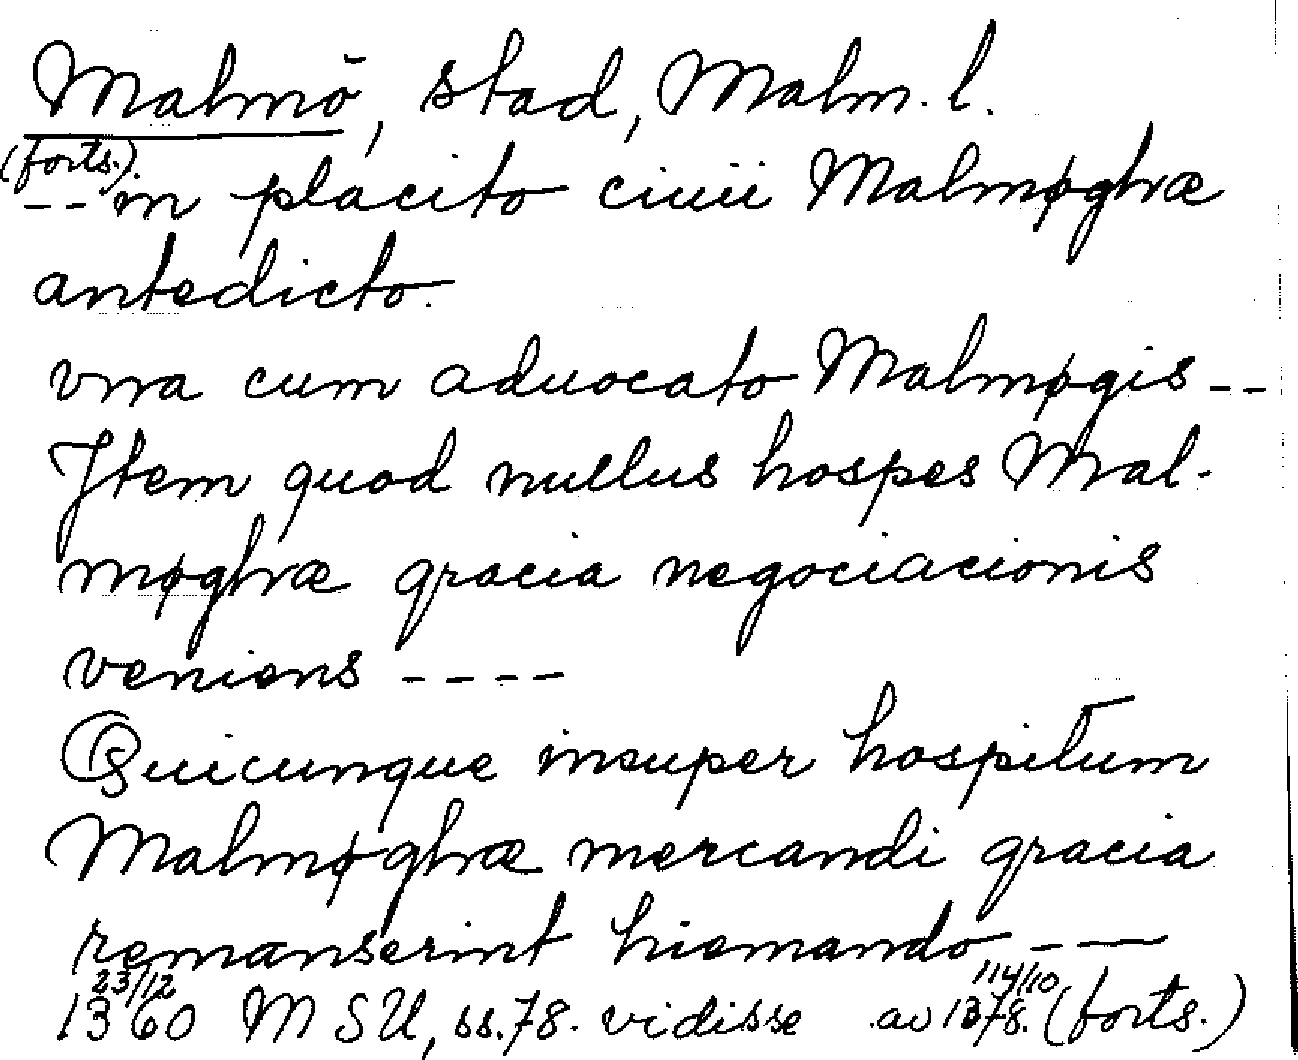 Malmö, stad, Malm. l.
(forts.).
-- in placito ciuii Malmøghæ
antedicto.
vna cum aduocato Malmøgis --
Jtem quod nullus hospes Mal-
møghæ gracia negociacionis
veniens ----
Quicunque insuper hospitum
Malmøghæ mercandi gracia
remanserint hiemando ---
23/12 14/10
1360 MSU, ss. 78. vidisse av 1378. (forts.)